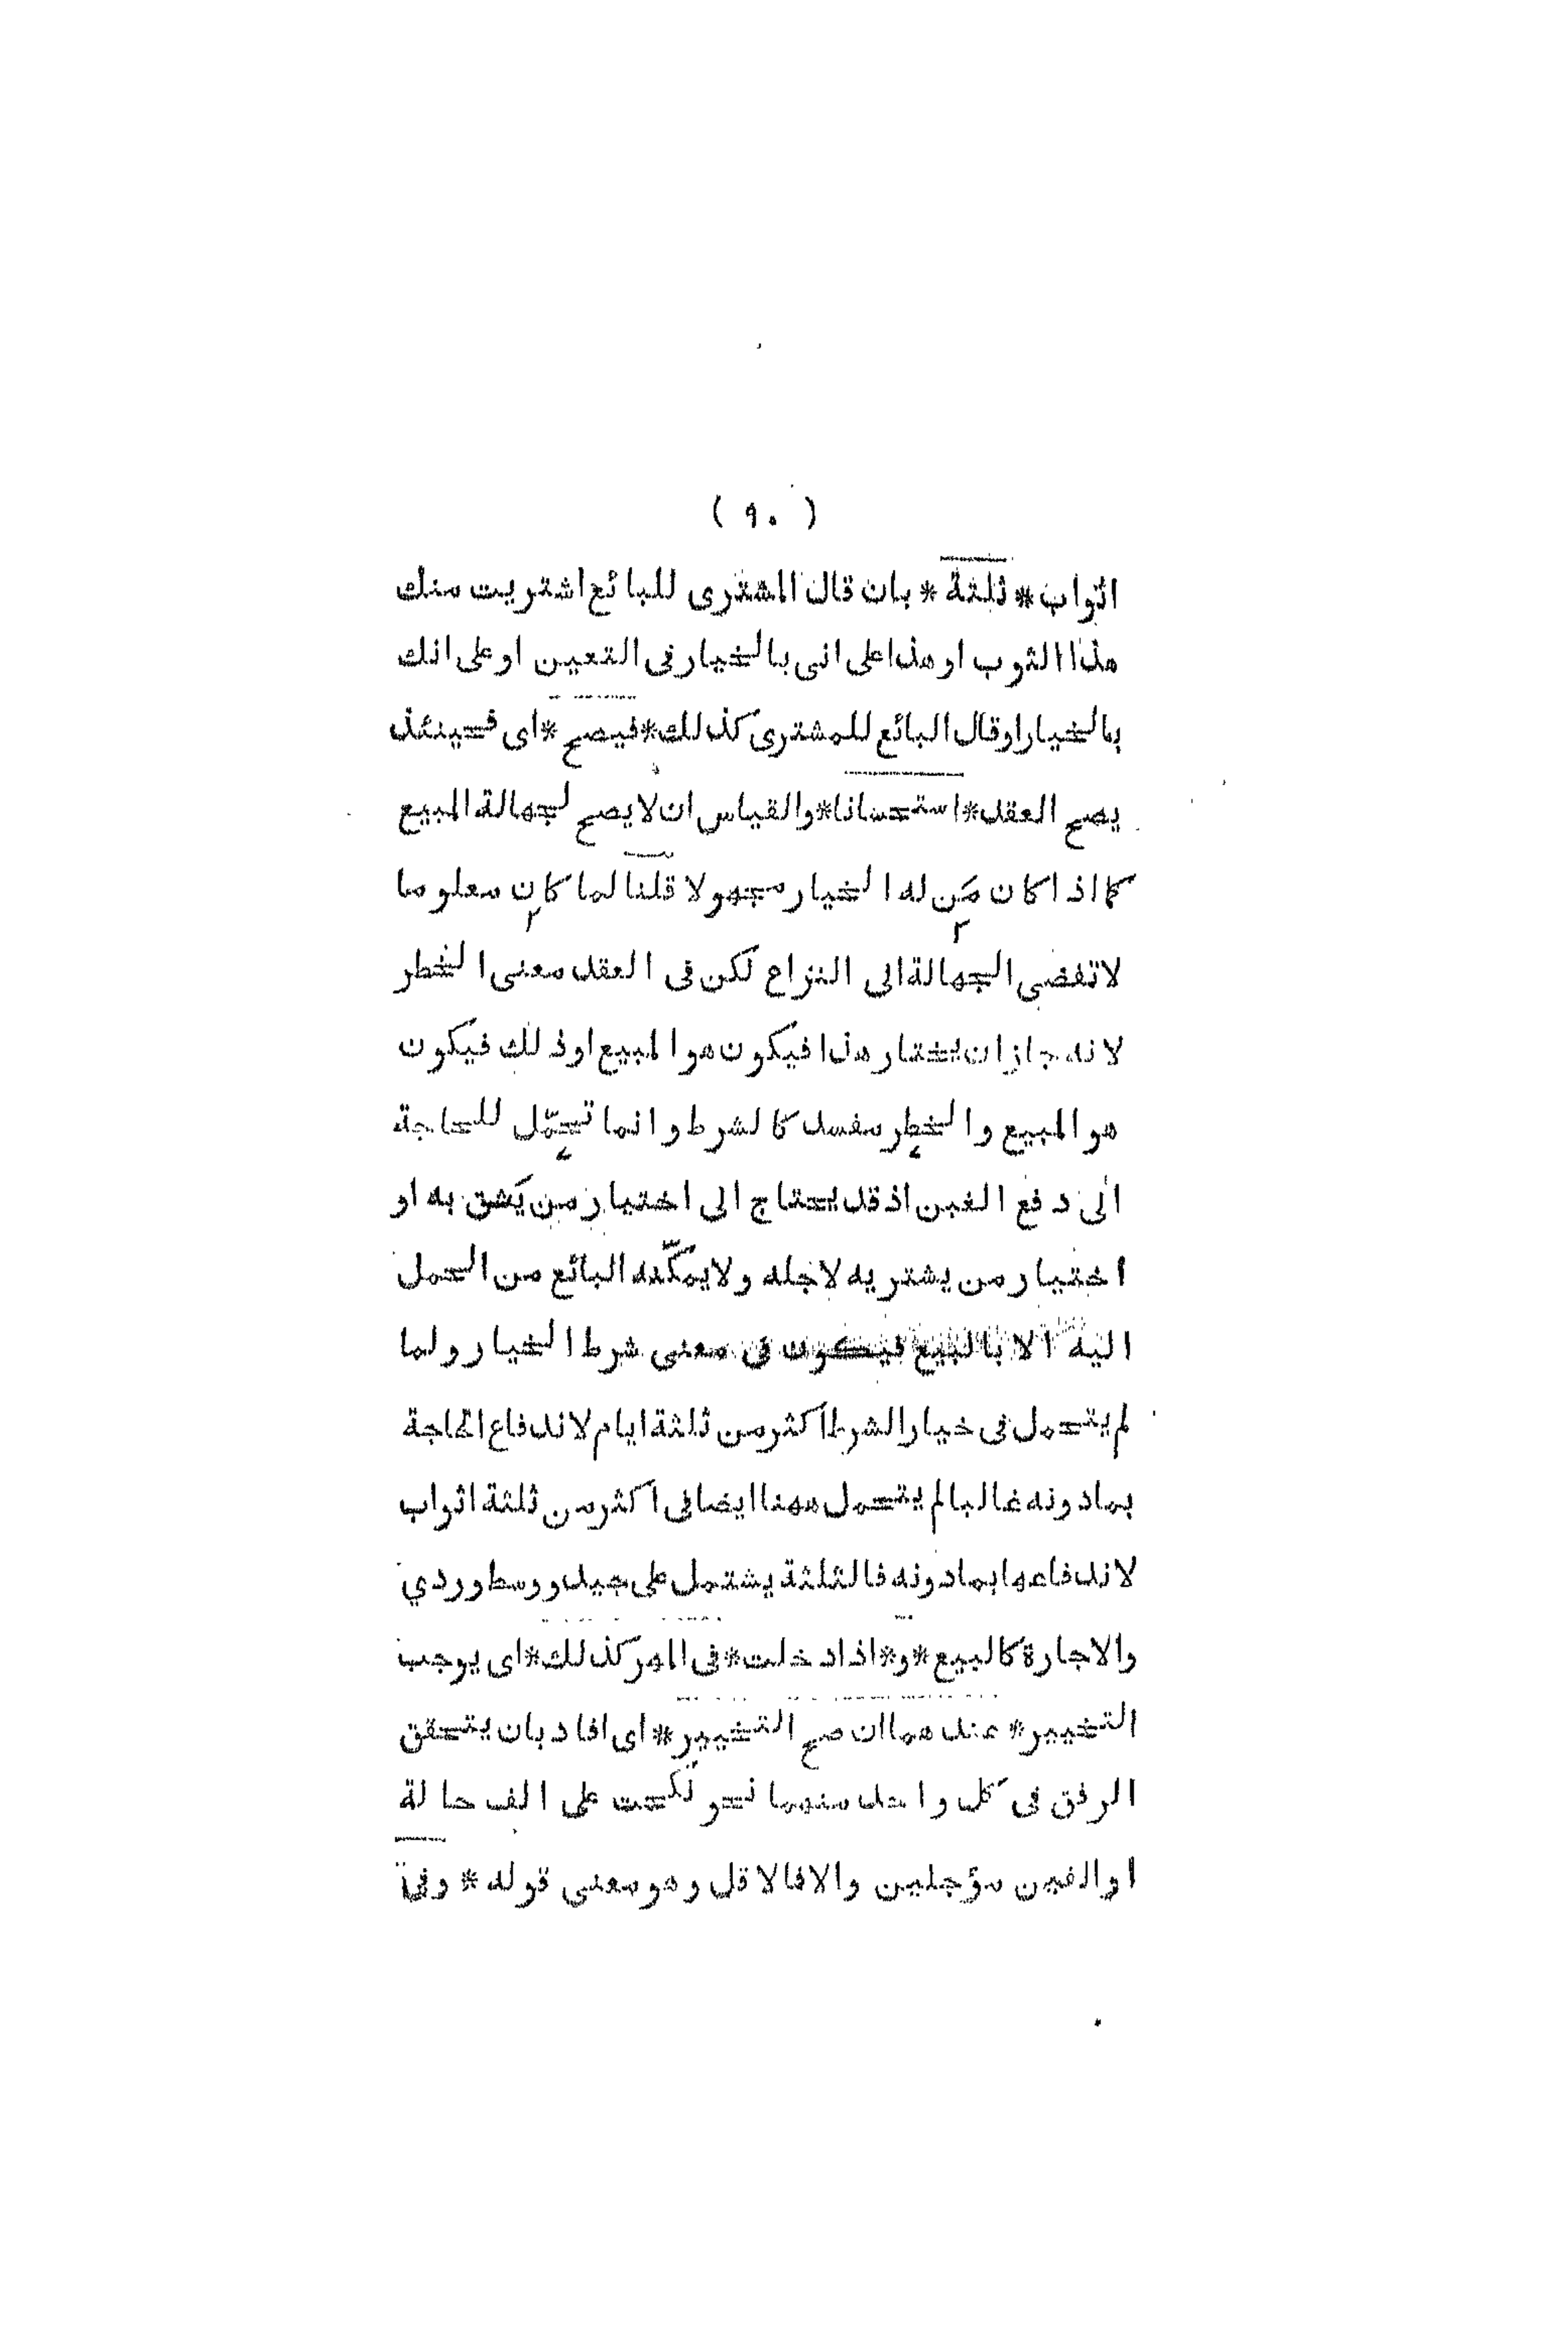 ( ٩٠ )
اثواب * ثلثة * بان قال المشترى للبائع اشتريت منك
هذا الثوب او هذا على انى بالخيار فى التعين او على انك
بالخيار او قال البائع للمشترى كذلك * فيصح * اى فحينئذ
يصح العقد * استحسانا * والقياس ان لا يصح لجهالة المبيع
كما اذا كان مَن له الخيار مجهولا قلنا لما كان معلوما
لا تفضى الجهالة الى النزاع لكن فى العقد معنى الخطر
لانه جاز ان يختار هذا فيكون هو المبيع او ذلك فيكون
هو المبيع والخطر مفسد كالشرط وانما تحمّل للحاجة
الى دفع الغبن اذ قد يحتاج الى اختيار من يَشق به او
اختيار من يشتريه لاجله ولا يمكّنه البائع من الحمل
اليه الا بالبيع فيكون فى معنى شرط الخيار ولما
لم يتحمل فى خيار الشرط اكثر من ثلثة ايام لاندفاع الحاجة
بمادونه غالبا لم يتحمل ههنا ايضا فى اكثر من ثلثة اثواب
لاندفاعها بمادونه فالثلثة يشتمل على جيد ووسط وردي
والاجارة كالبيع * و * اذا دخلت * فى المهر كذلك * اى يوجب
التخيير * عندهما ان صح التخيير * اى افاد بان يتحقق
الرفق فى كل واحد منهما نحو نكحت على الف حالة
او الفين مؤجلين والا فالاقل وهو معنى قوله * وفى